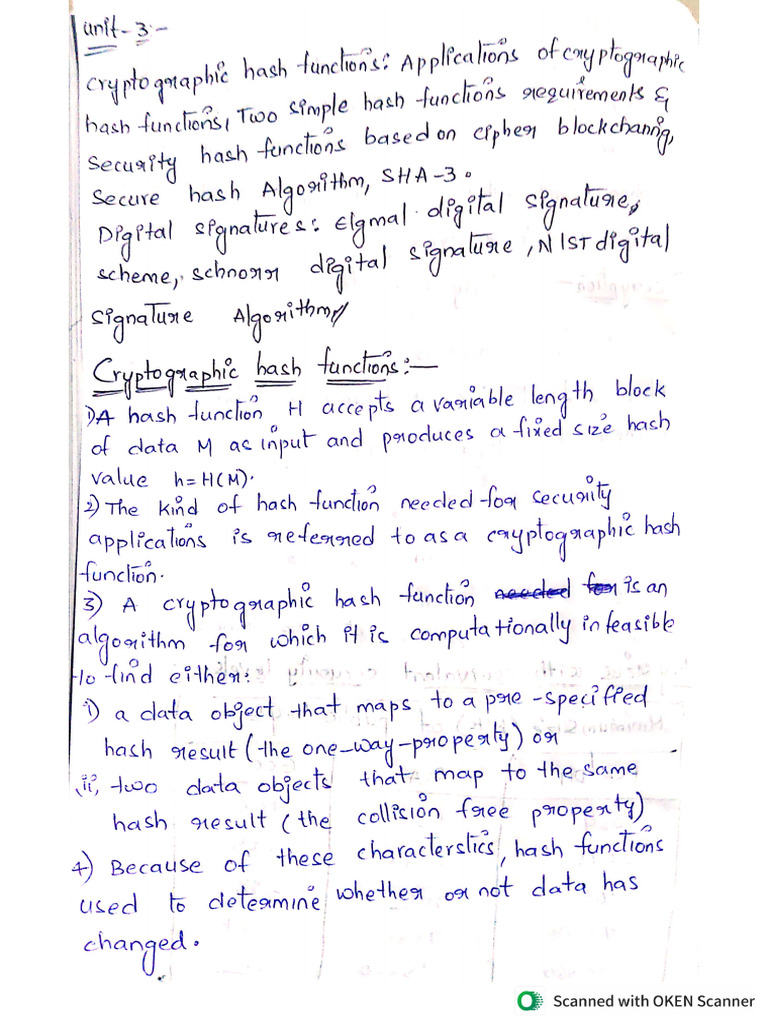 unit-3:-
Cryptographic hash functions: Applications of cryptographic
hash functions, Two simple hash functions requirements &
Security hash functions based on cipher blockchaning,
Secure hash Algorithm, SHA-3.
Digital signatures: Elgmal digital signature,
scheme, schnorr digital signature, NIST digital
signature Algorithm//
Cryptographic hash functions:-
1) A hash function H accepts a variable length block
of data M as input and produces a fixed size hash
value h=H(M).
2) The kind of hash function needed for security
applications is referred to as a cryptographic hash
function.
3) A cryptographic hash function needed for is an
algorithm for which it is computationally infeasible
to find either:
i) a data object that maps to a pre-speciffed
hash result (the one-way-property) or
ii, two data objects that map to the same
hash result (the collision free property)
4) Because of these characterstics, hash functions
used to determine whether or not data has
changed.
Scanned with OKEN Scanner